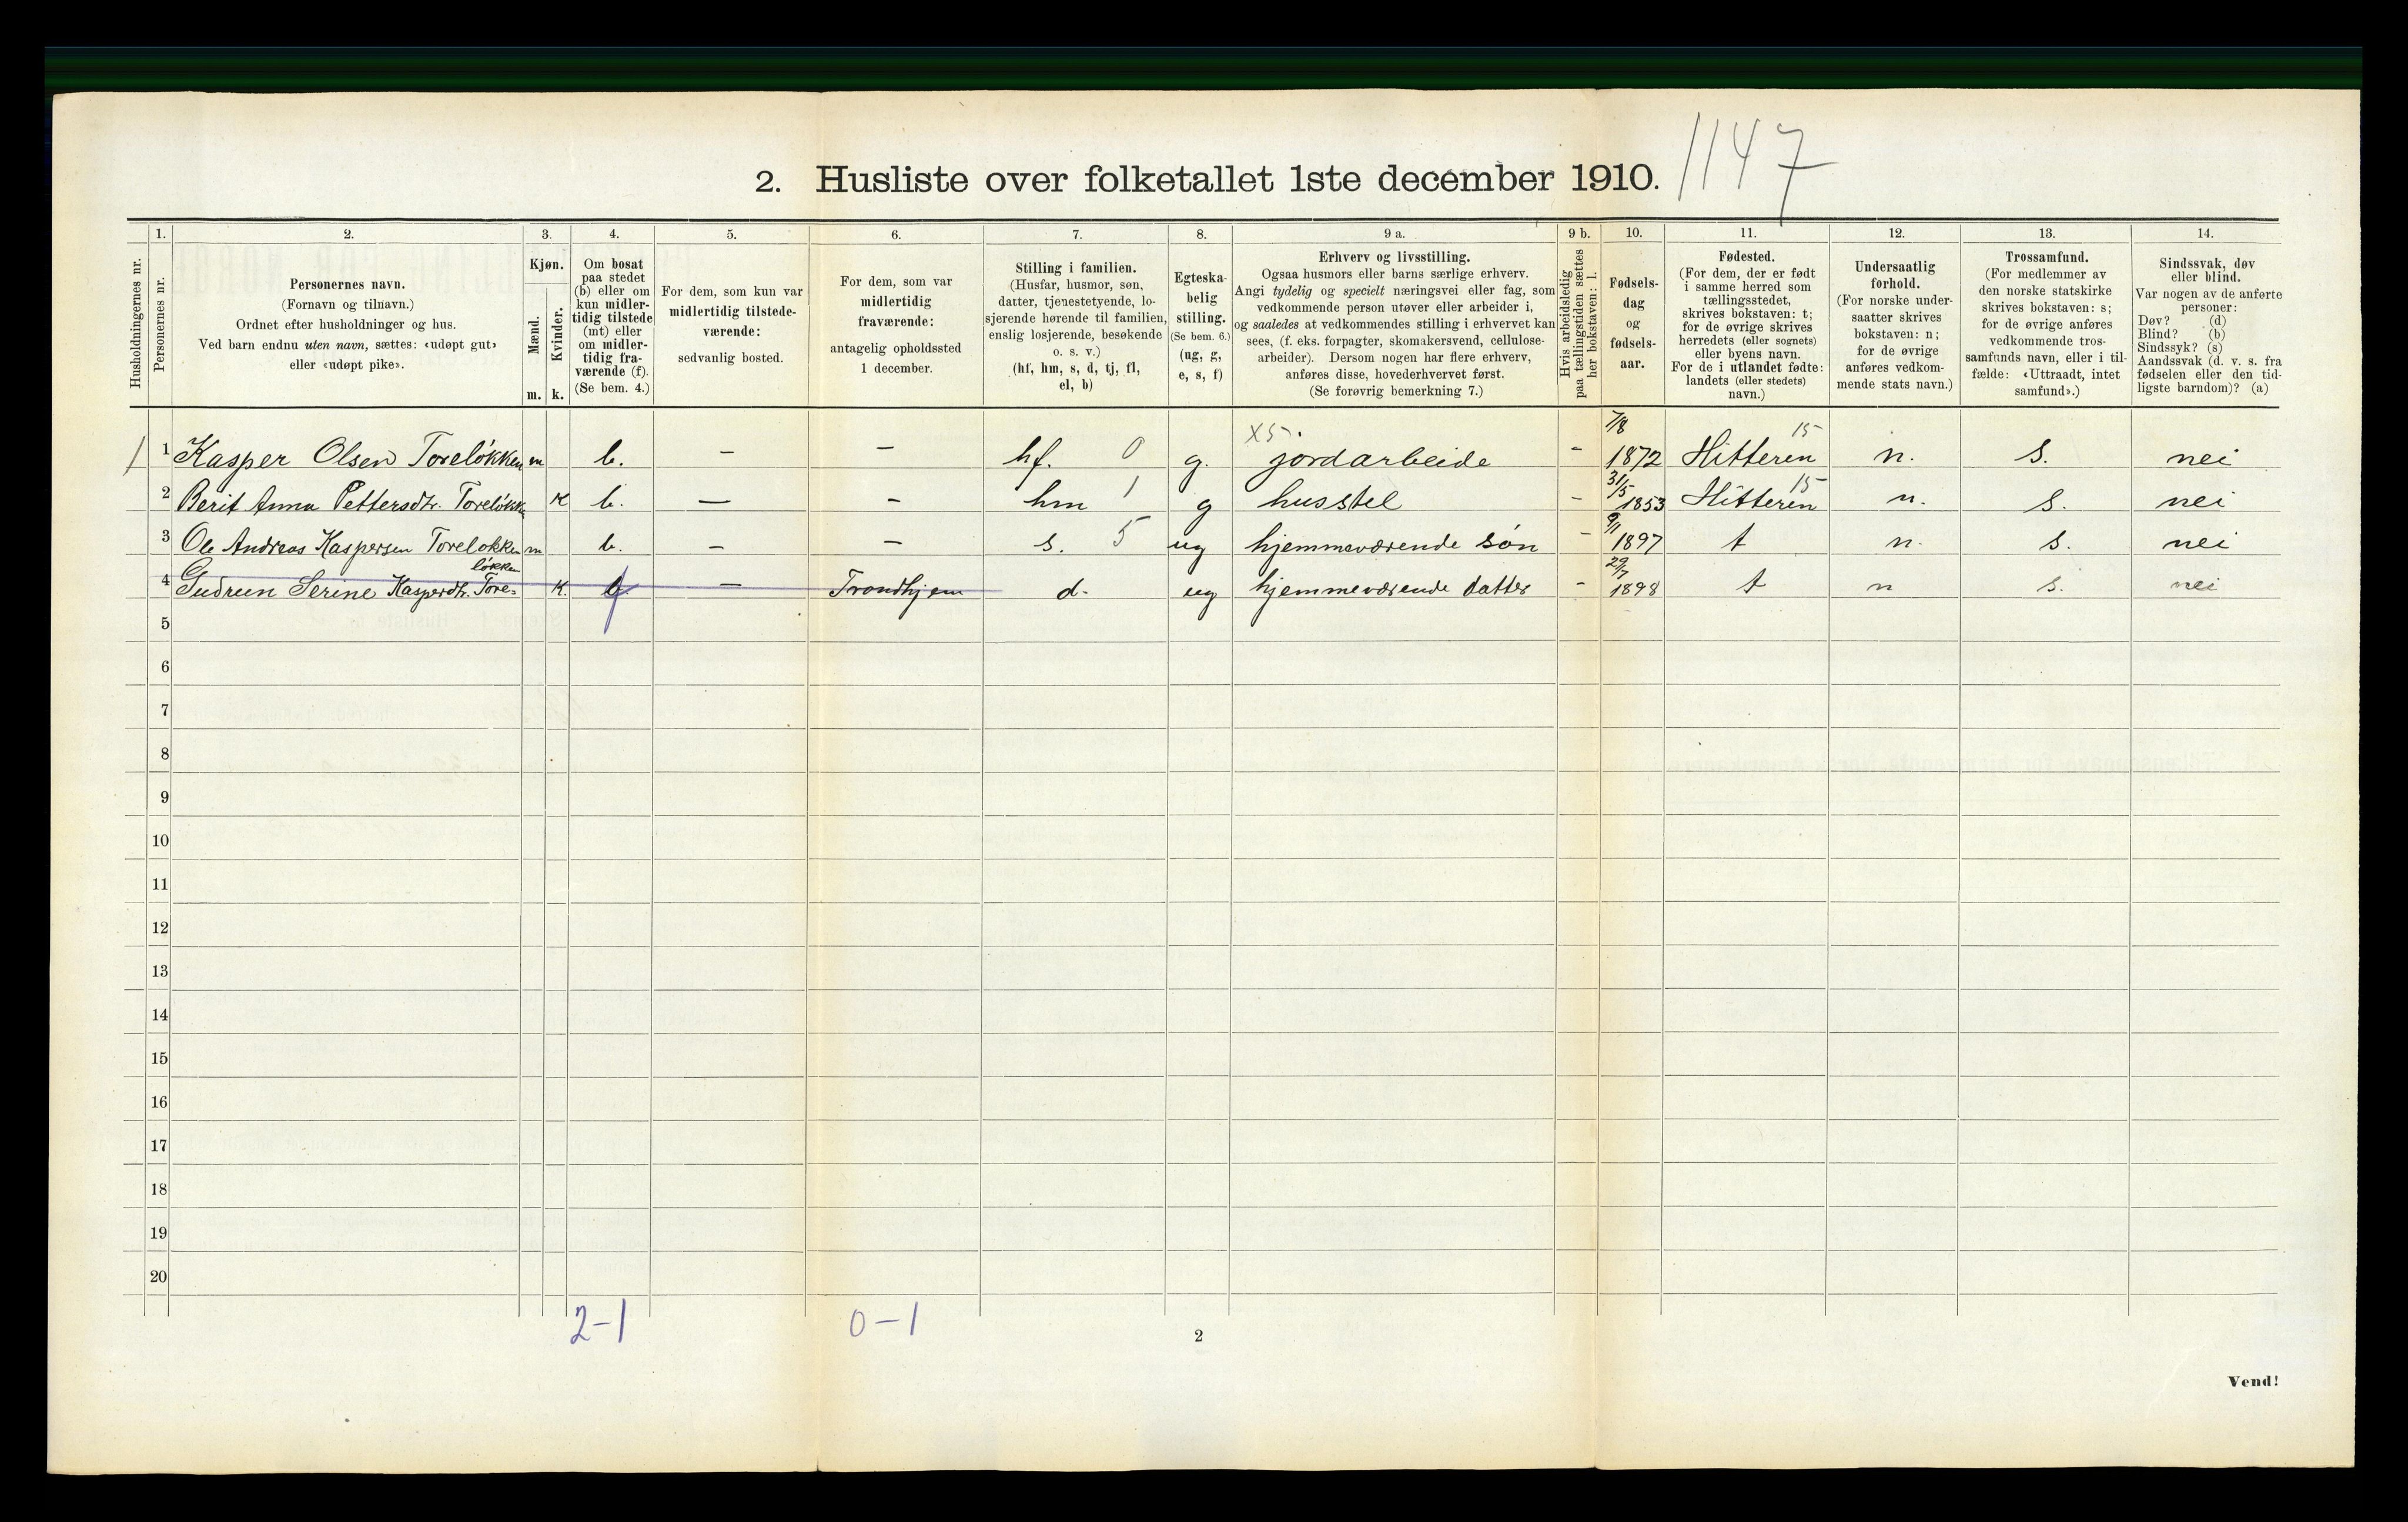 2. Husliste over folketallet 1ste december 1910. 1147
1. 2. 3. 4. 5. 6. 7. 8. 9 a. 9 b. 10. 11. 12. 13. 14.
Husholdningernes nr.
Personernes nr.
Personernes navn.
(Fornavn og tilnavn.)
Ordnet efter husholdninger og hus.
Ved barn endnu uten navn, sættes: «udøpt gut»
eller «udøpt pike».
Kjøn.
Mænd.
m.
Kvinder.
k.
Om bosat
paa stedet
(b) eller om
kun midler-
tidig tilstede
(mt) eller
om midler-
tidig fra-
værende (f).
(Se bem. 4.)
For dem, som kun var
midlertidig tilstede-
værende:
sedvanlig bosted.
For dem, som var
midlertidig
fraværende:
antagelig opholdssted
1 december.
Stilling i familien.
(Husfar, husmor, søn,
datter, tjenestetyende, lo-
sjerende hørende til familien,
enslig losjerende, besøkende
o. s. v.)
(hf, hm, s, d, tj, fl,
el, b)
Egteska-
belig
stilling.
(Se bem. 6.)
(ug, g,
e, s, f)
Erhverv og livsstilling.
Ogsaa husmors eller barns særlige erhverv.
Angi tydelig og specielt næringsvei eller fag, som
vedkommende person utøver eller arbeider i,
og saaledes at vedkommendes stilling i erhvervet kan
sees, (f. eks. forpagter, skomakersvend, cellulose-
arbeider). Dersom nogen har flere erhverv,
anføres disse, hovederhvervet først.
(Se forøvrig bemerkning 7.)
Hvis arbeidsledig
paa tællingstiden sættes
her bokstaven: l.
Fødsels-
dag
og
fødsels-
aar.
Fødested.
(For dem, der er født
i samme herred som
tællingsstedet,
skrives bokstaven: t;
for de øvrige skrives
herredets (eller sognets)
eller byens navn.
For de i utlandet fødte:
landets (eller stedets)
navn.)
Undersaatlig
forhold.
(For norske under-
saatter skrives
bokstaven: n;
for de øvrige
anføres vedkom-
mende stats navn.)
Trossamfund.
(For medlemmer av
den norske statskirke
skrives bokstaven: s;
for de øvrige anføres
vedkommende tros-
samfunds navn, eller i til-
fælde: «Uttraadt, intet
samfund».)
Sindssvak, døv
eller blind.
Var nogen av de anførte
personer:
Døv? (d)
Blind? (b)
Sindssyk? (s)
Aandssvak (d. v. s. fra
fødselen eller den tid-
ligste barndom)? (a)
X5. 7/8 15
1 1 Kasper Olsen Toreløkken m b. — — hf. 0 g. jordarbeide - 1872 Hitteren n. s. nei
31/5 15
2 Berit Anna Pettersdtr. Toreløkk K b. — - hm 1 g husstel - 1853 Hitteren n. s. nei
9/11
3 Ole Andreas Kaspersen Toreløkken m b. — — s. 5 ug hjemmeværende søn - 1897 t n. s. nei
løkken 29/7
4 Gudrun Serine Kasperdtr. Tore= K. f — Trondhjem d. ug hjemmeværende datter - 1898 t n s. nei
5
6
7
8
9
10
11
12
13
14
15
16
17
18
19
20
2-1 0-1
2
Vend!